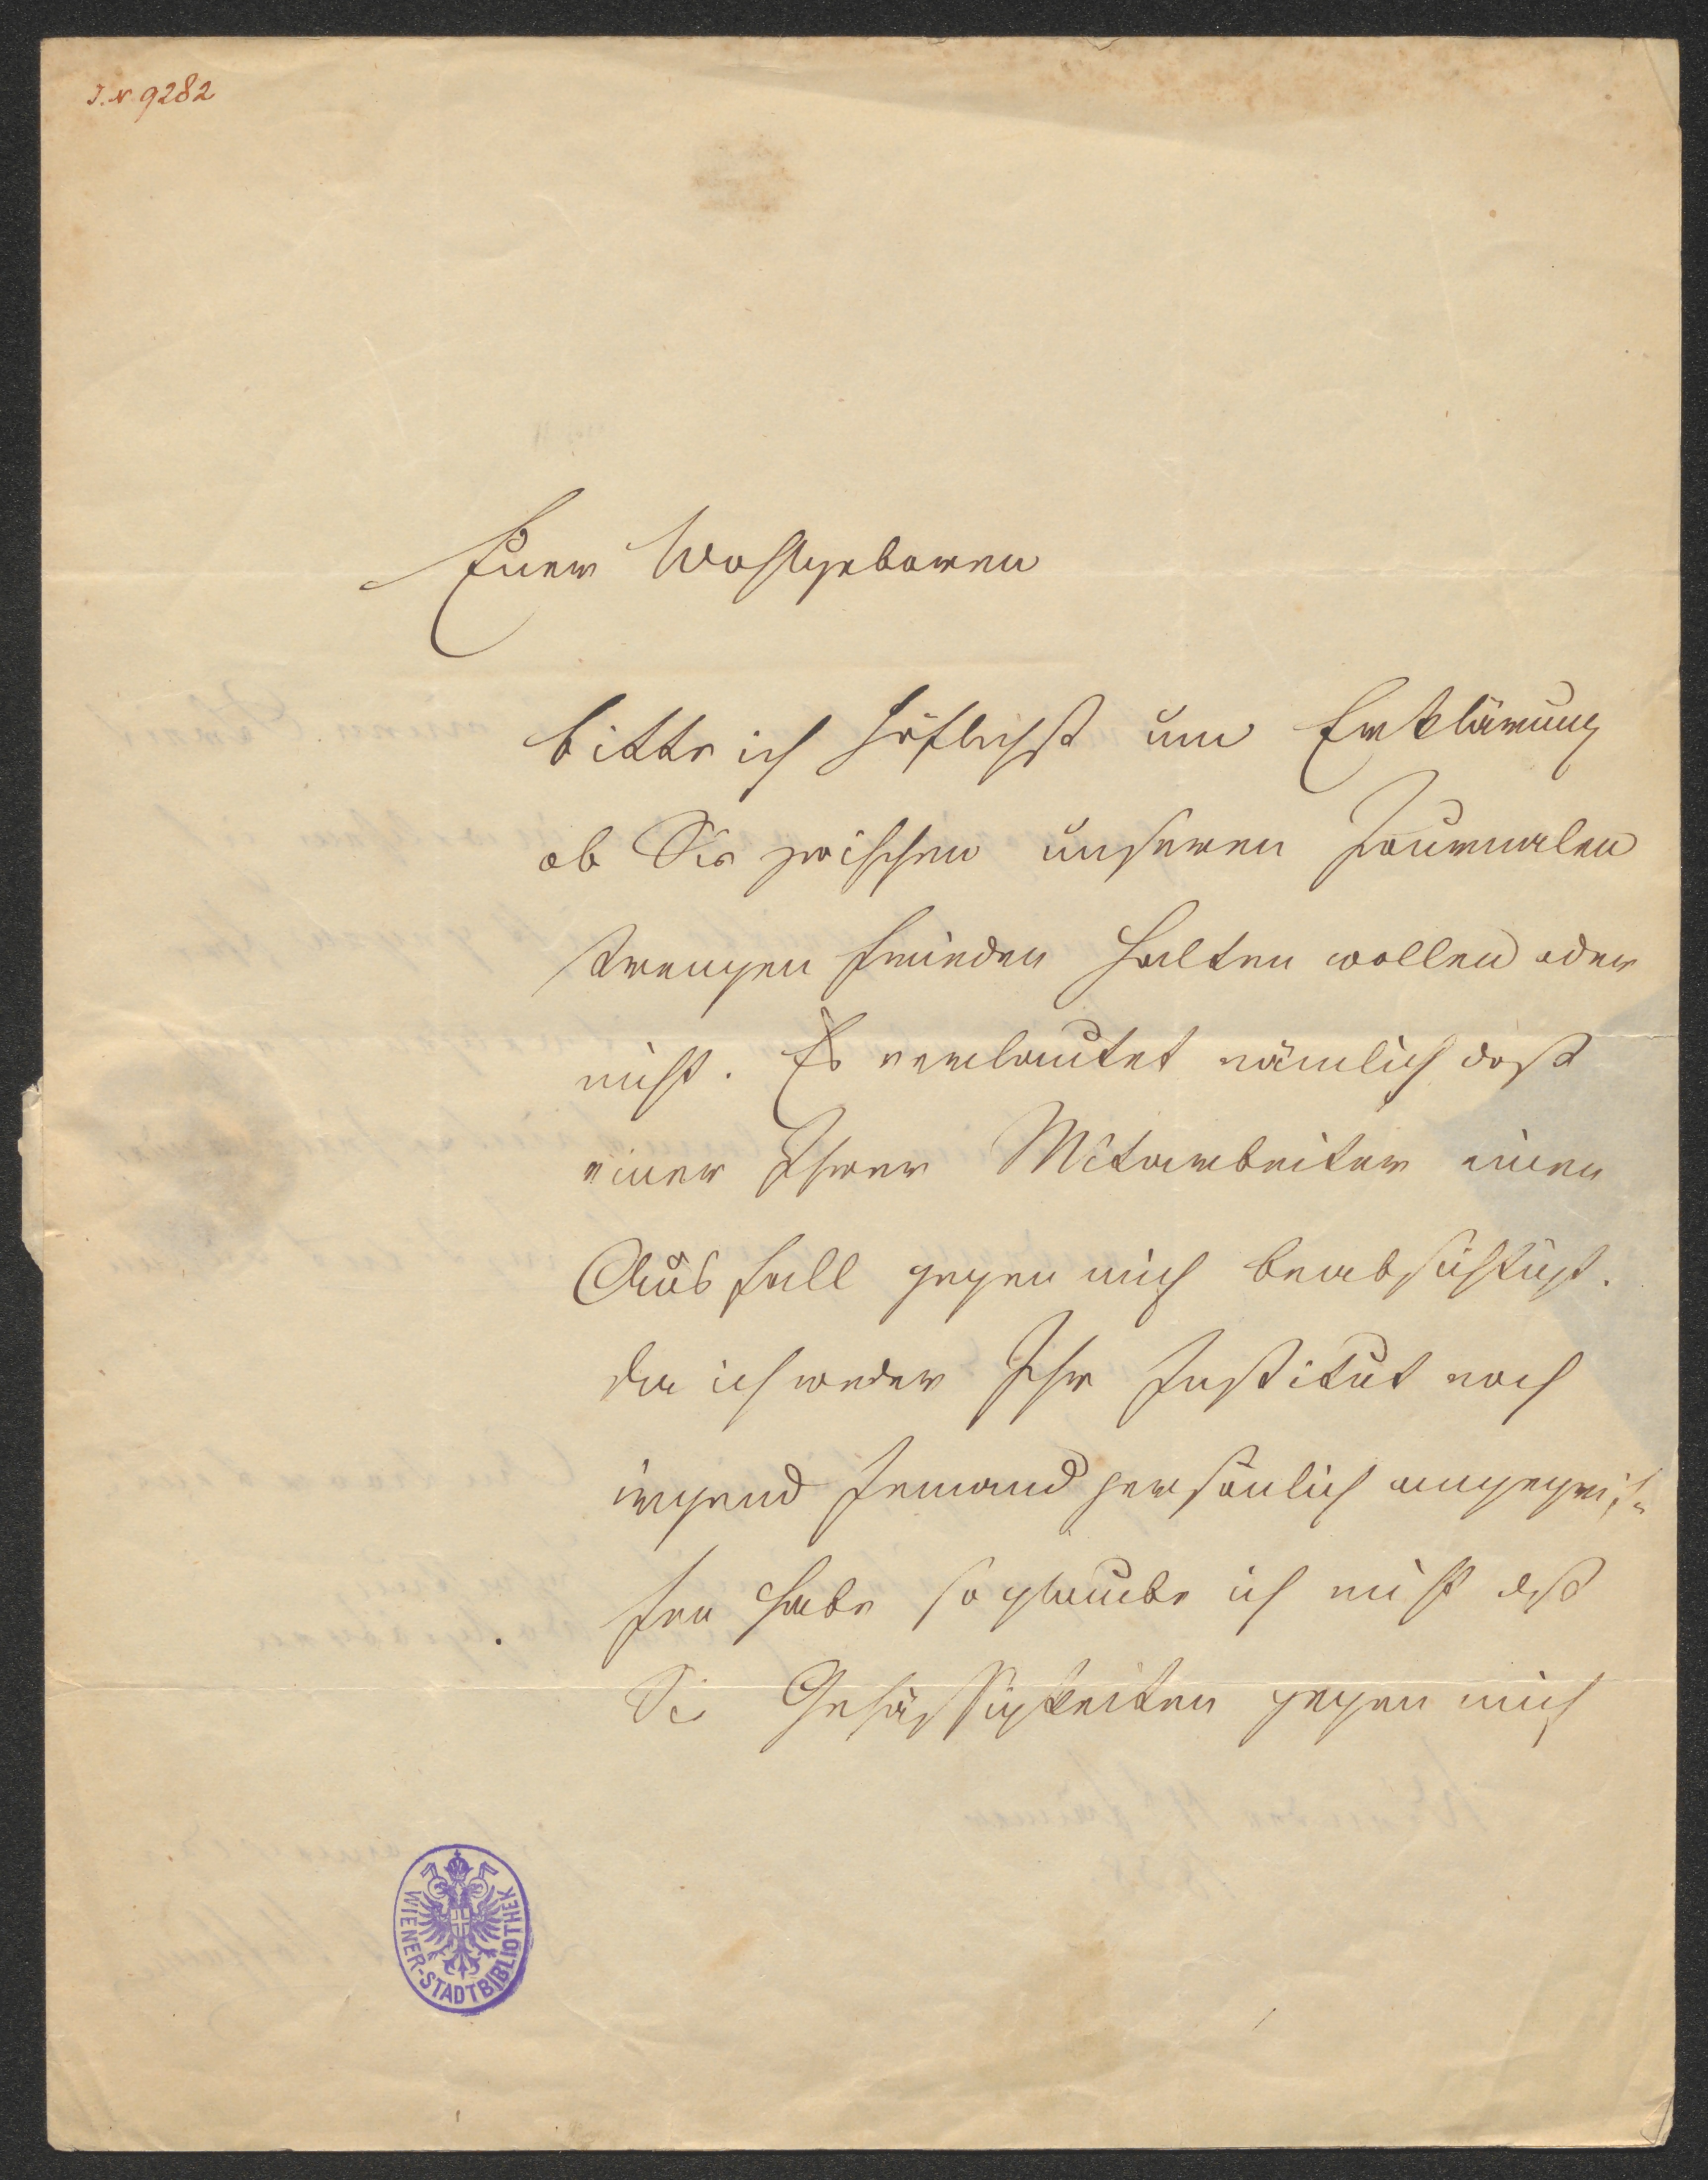 J. N 9282
Euer Wohlgeboren
bitte ich höflichst um Erklärung
ob Sie zwischen unseren Journalen
strengen Frieden halten wollen oder
nicht. Es verlautet nämlich daß
einer Ihrer Mitarbeiter einen
Ausfall gegen mich beabsichtigt.
Da ich weder Ihr Institut noch
irgend Jemand persönlich angegrif-
fen habe so glaube ich nicht daß
Sie Gehässigkeiten gegen mich
WIENER-STADTBIBLIOTHEK